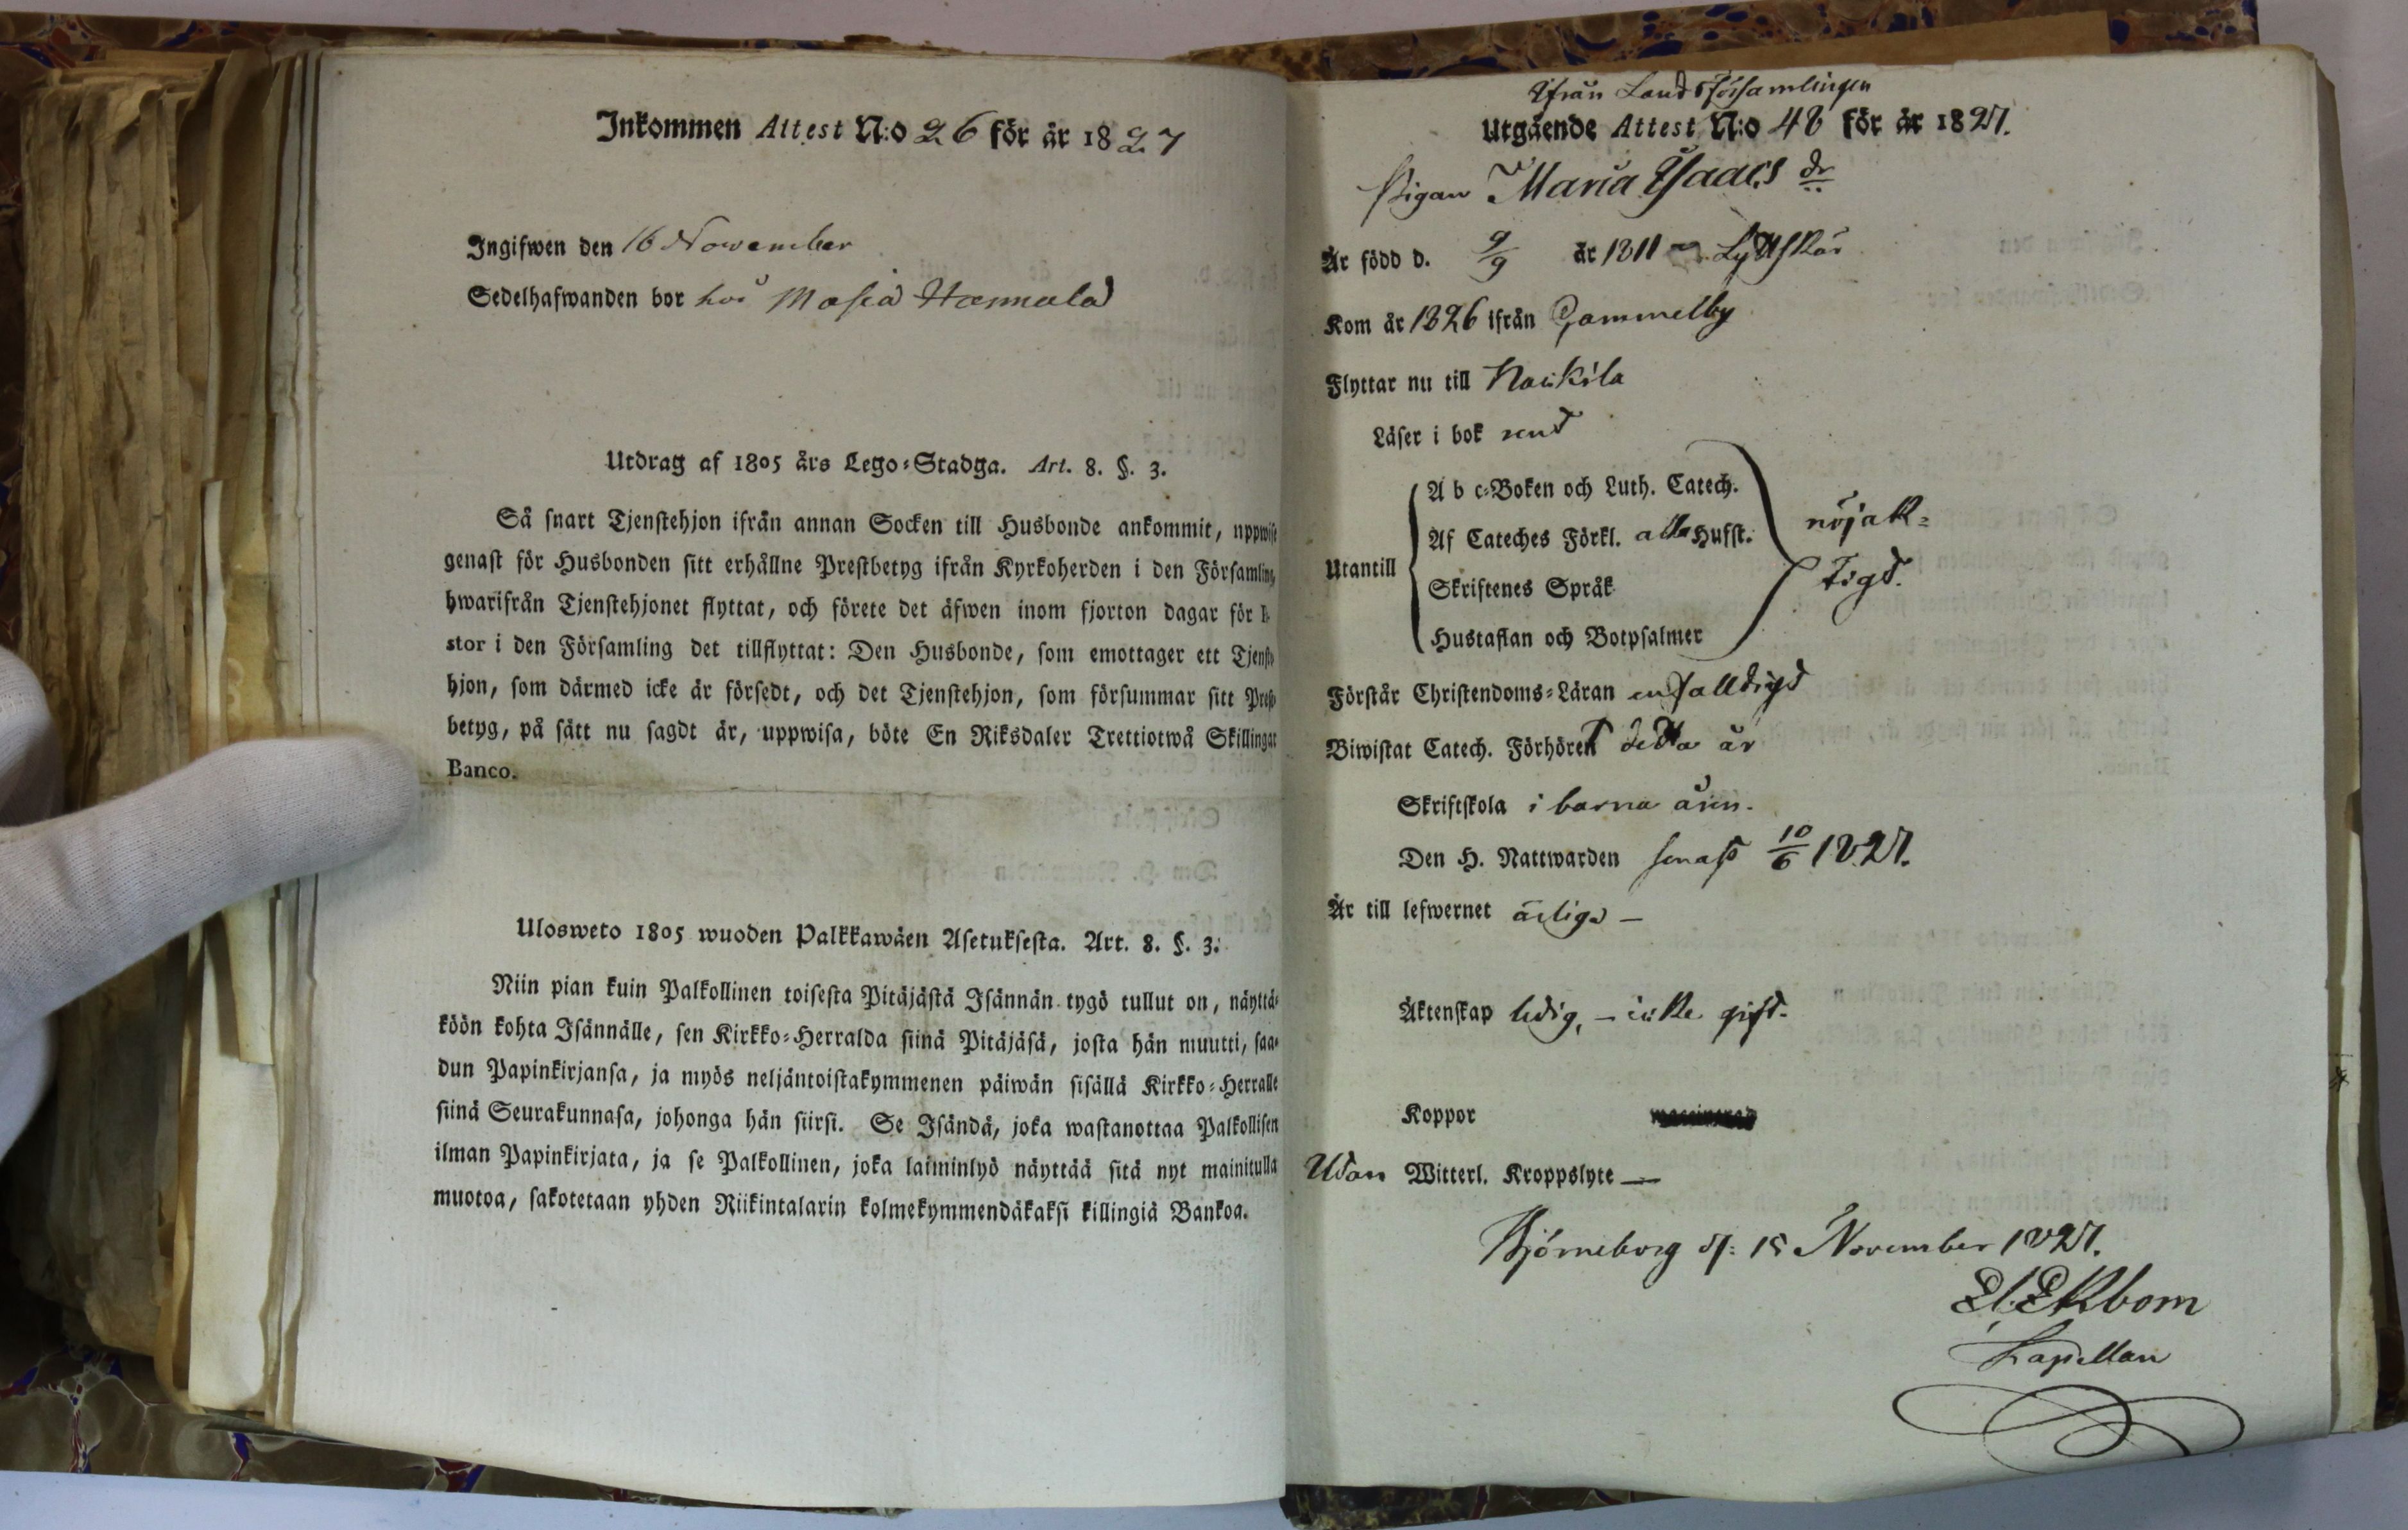 Inkommen Attest N:o 26 för år 1827
Ingifwen den 16 November
Sedelhafwanden bor hos Masia Hannula
Utdrag af 1805 års Lego-Stadga. Art. 8. §. 3.
Så snart Tjenstehjon ifrån annan Socken till Husbonde ankommit, uppwise
genast för Husbonden sitt erhållne Prestbetyg ifrån Kyrkoherden i den Församling,
hwarifrån Tjenstehjonet flyttat, och förete det äfwen inom fjorton dagar för
stor i den Församling det tillflyttat: Den Husbonde, som emottager ett Tjenste
hjon, som därmed icke är försedt, och det Tjenstehjon, som försummar sitt Prest
betyg, på sätt nu sagdt är, uppwisa, böte En Riksdaler Trettiotwå Skillingar
Banco.
Ulosweto 1805 wuoden Palkkawäen Asetuksesta. Art. 8. §. 3.
Niin pian kuin Palkollinen toisesta Pitäjästä Isännän tygö tullut on, näyttä-
köön kohta Isännälle, sen Kirkko-Herralda siinä Pitäjäsä, josta hän muutti, saa-
dun Papinkirjansa, ja myös neljäntoistakymmenen päiwän sisällä Kirkko-Herralle
siinä Seurakunnasa, johonga hän siirsi. Se Isändä, joka wastanottaa Palkollisen
ilman Papinkirjata, ja se Palkollinen, joka laiminlyö näyttää sitä nyt mainitulla
muotoa, sakotetaan yhden Riikintalarin kolmekymmendäkaksi killingiä Bankoa.
Ifrån Landsförsamlingen
Utgående Attest N:o 48 för år 1827.
Pigan Maria Isaacs dr
Är född d. 9/9 år 1811 Lyttskär
Kom år 1826 ifrån Gammelby
Flyttar nu till Nackila
Läser i bok rent
A b c-Boken och Luth. Catech.
Af Cateches Förkl. alla Hufst.
Utantill
Skriftenes Språk
Hustaflan och Botpsalmer
nöjak-
tigt.
Förstår Christendoms-Läran enfalldigt
Biwistat Catech. Förhöret detta år
Skriftskola i barna åren.
Den H. Nattwarden senast 10/6 1827.
Är till lefwernet ärlig —
Äktenskap ledig, - icke gift.
Koppor
Utan Witterl. Kroppslyte —
Björneborg d: 15 November 1827.
El. Ekbom
Kapellan